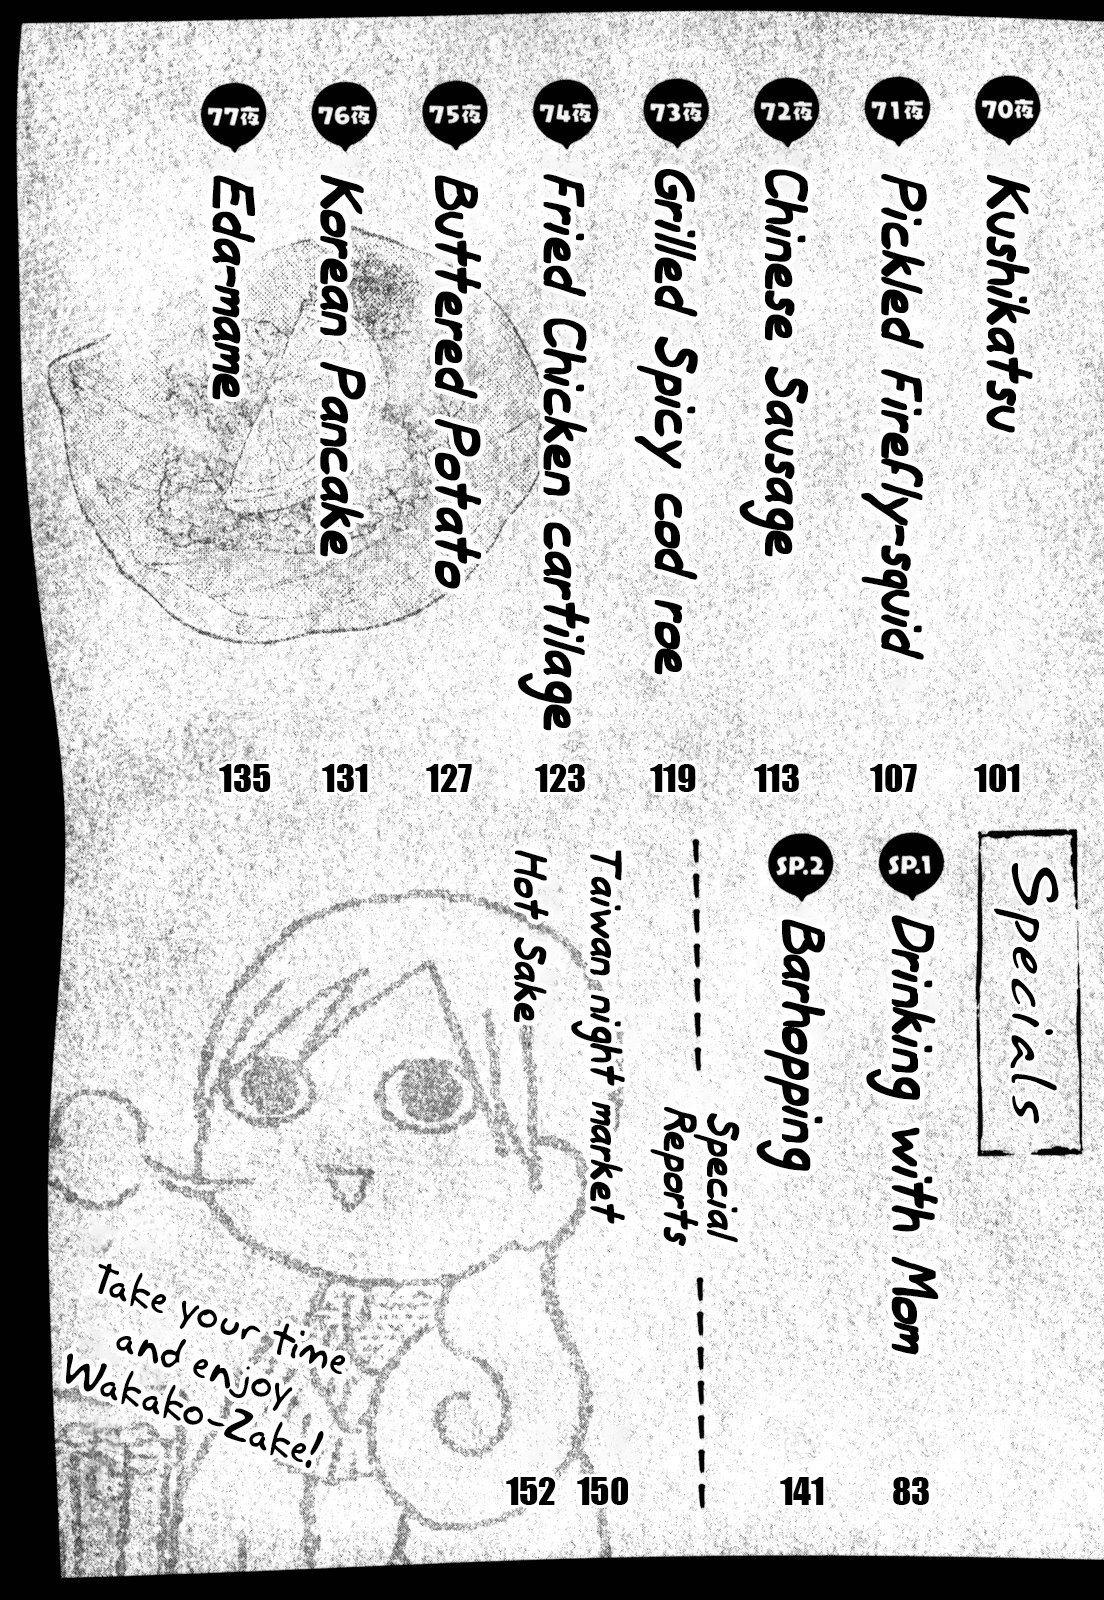 70夜 Kushikatsu 101
71夜 Pickled Firefly-squid 107
72夜 Chinese Sausage 113
73夜 Grilled Spicy cod roe 119
74夜 Fried Chicken cartilage 123
75夜 Buttered Potato 127
76夜 Korean Pancake 131
77夜 Eda-mame 135
Specials
SP.1 Drinking with Mom 83
SP.2 Barhopping 141
Special
Reports
Taiwan night market 150
Hot Sake 152
Take your time
and enjoy
Wakako-Zake!